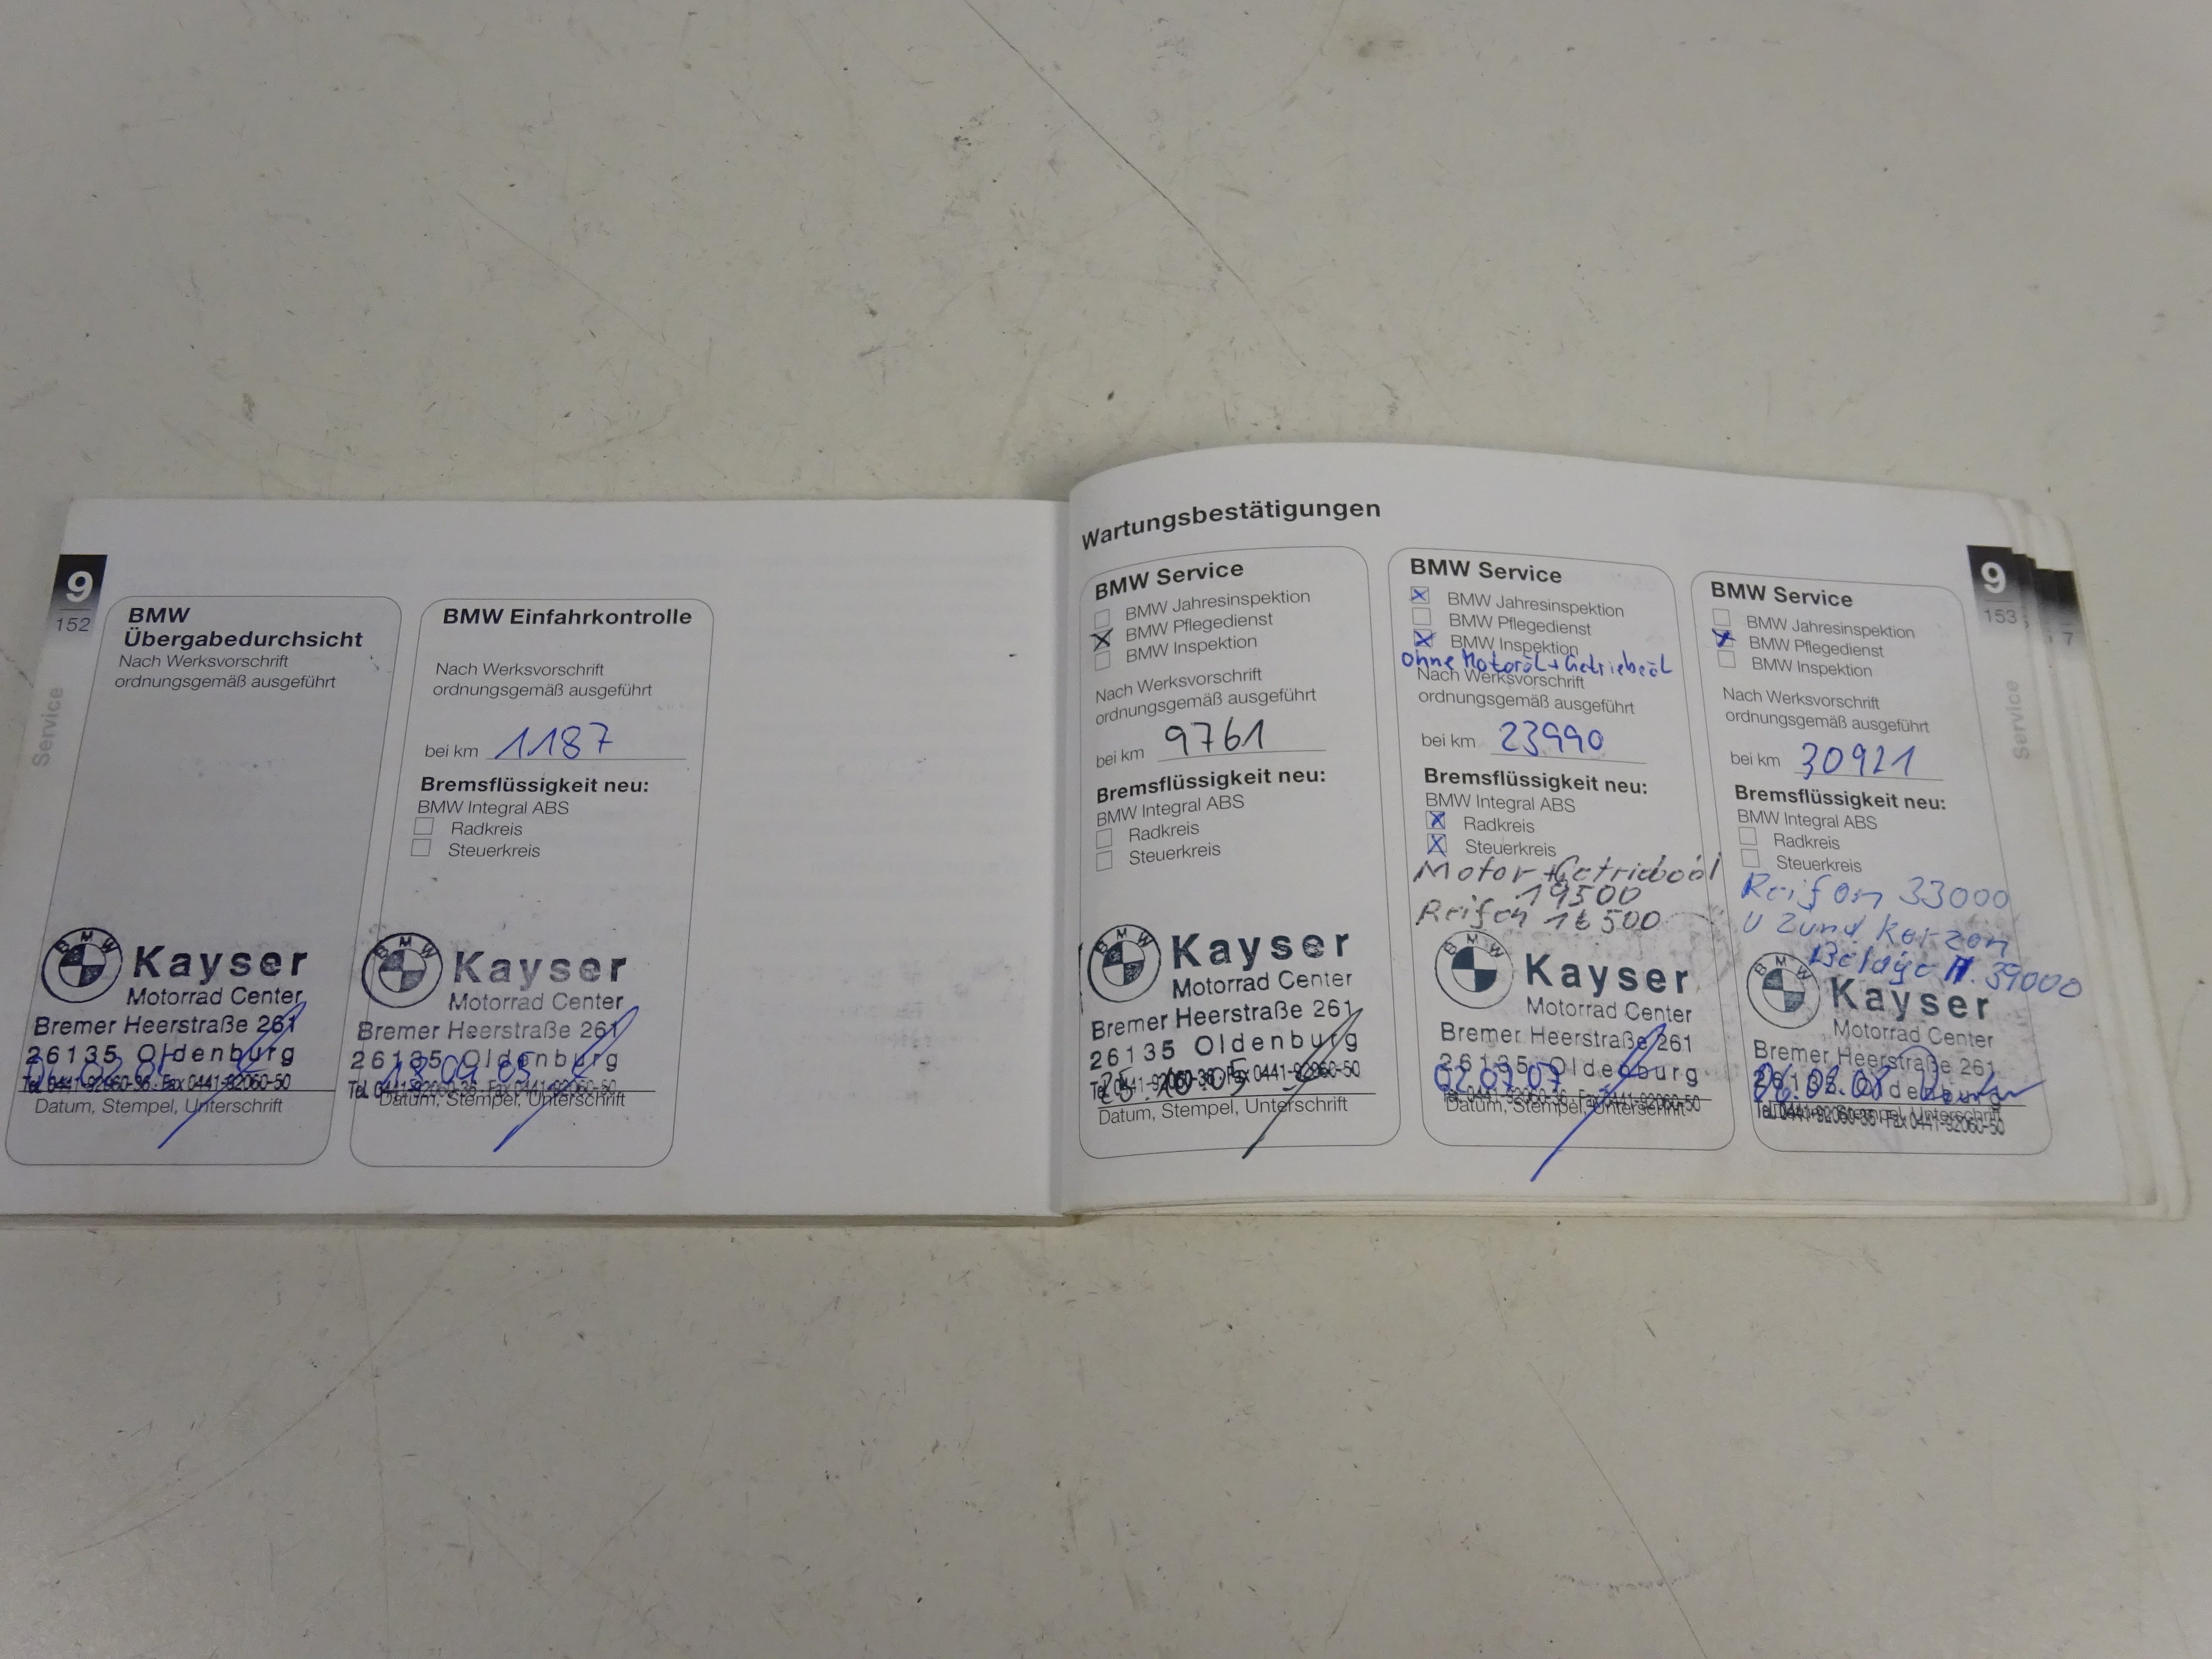 9
152
Service
BMW
Übergabedurchsicht
Nach Werksvorschrift
ordnungsgemäß ausgeführt
BMW
Kayser
Motorrad Center
Bremer Heerstraße 261
26135 Oldenburg
Tel. 0441-92060-36 · Fax 0441-92060-50
Datum, Stempel, Unterschrift
BMW Einfahrkontrolle
Nach Werksvorschrift
ordnungsgemäß ausgeführt
bei km 1187
Bremsflüssigkeit neu:
BMW Integral ABS
Radkreis
Steuerkreis
BMW
Kayser
Motorrad Center
Bremer Heerstraße 261
26135 Oldenburg
18.04.05
Tel. 0441-92060-36 · Fax 0441-92060-50
Datum, Stempel, Unterschrift
Wartungsbestätigungen
BMW Service
BMW Jahresinspektion
BMW Pflegedienst
BMW Inspektion
Nach Werksvorschrift
ordnungsgemäß ausgeführt
bei km 9761
Bremsflüssigkeit neu:
BMW Integral ABS
Radkreis
Steuerkreis
BMW
Kayser
Motorrad Center
Bremer Heerstraße 261
26135 Oldenburg
25.10.05
Tel. 0441-92060-36 · Fax 0441-92060-50
Datum, Stempel, Unterschrift
BMW Service
BMW Jahresinspektion
BMW Pflegedienst
BMW Inspektion
ohne Motoröl + Getriebeöl
Nach Werksvorschrift
ordnungsgemäß ausgeführt
bei km 23990
Bremsflüssigkeit neu:
BMW Integral ABS
Radkreis
Steuerkreis
Motor + Getriebööl
19500
Reifen 16500
BMW
Kayser
Motorrad Center
Bremer Heerstraße 261
26135 Oldenburg
02.07.07
Tel. 0441-92060-36 · Fax 0441-92060-50
Datum, Stempel, Unterschrift
BMW Service
BMW Jahresinspektion
BMW Pflegedienst
BMW Inspektion
Nach Werksvorschrift
ordnungsgemäß ausgeführt
bei km 30921
Bremsflüssigkeit neu:
BMW Integral ABS
Radkreis
Steuerkreis
Reifen 33000
u Zündkerzen
Beläge 39000
BMW
Kayser
Motorrad Center
Bremer Heerstraße 261
26135 Oldenburg
Tel. 0441-92060-36 · Fax 0441-92060-50
Datum, Stempel, Unterschrift
9
153
7
Service